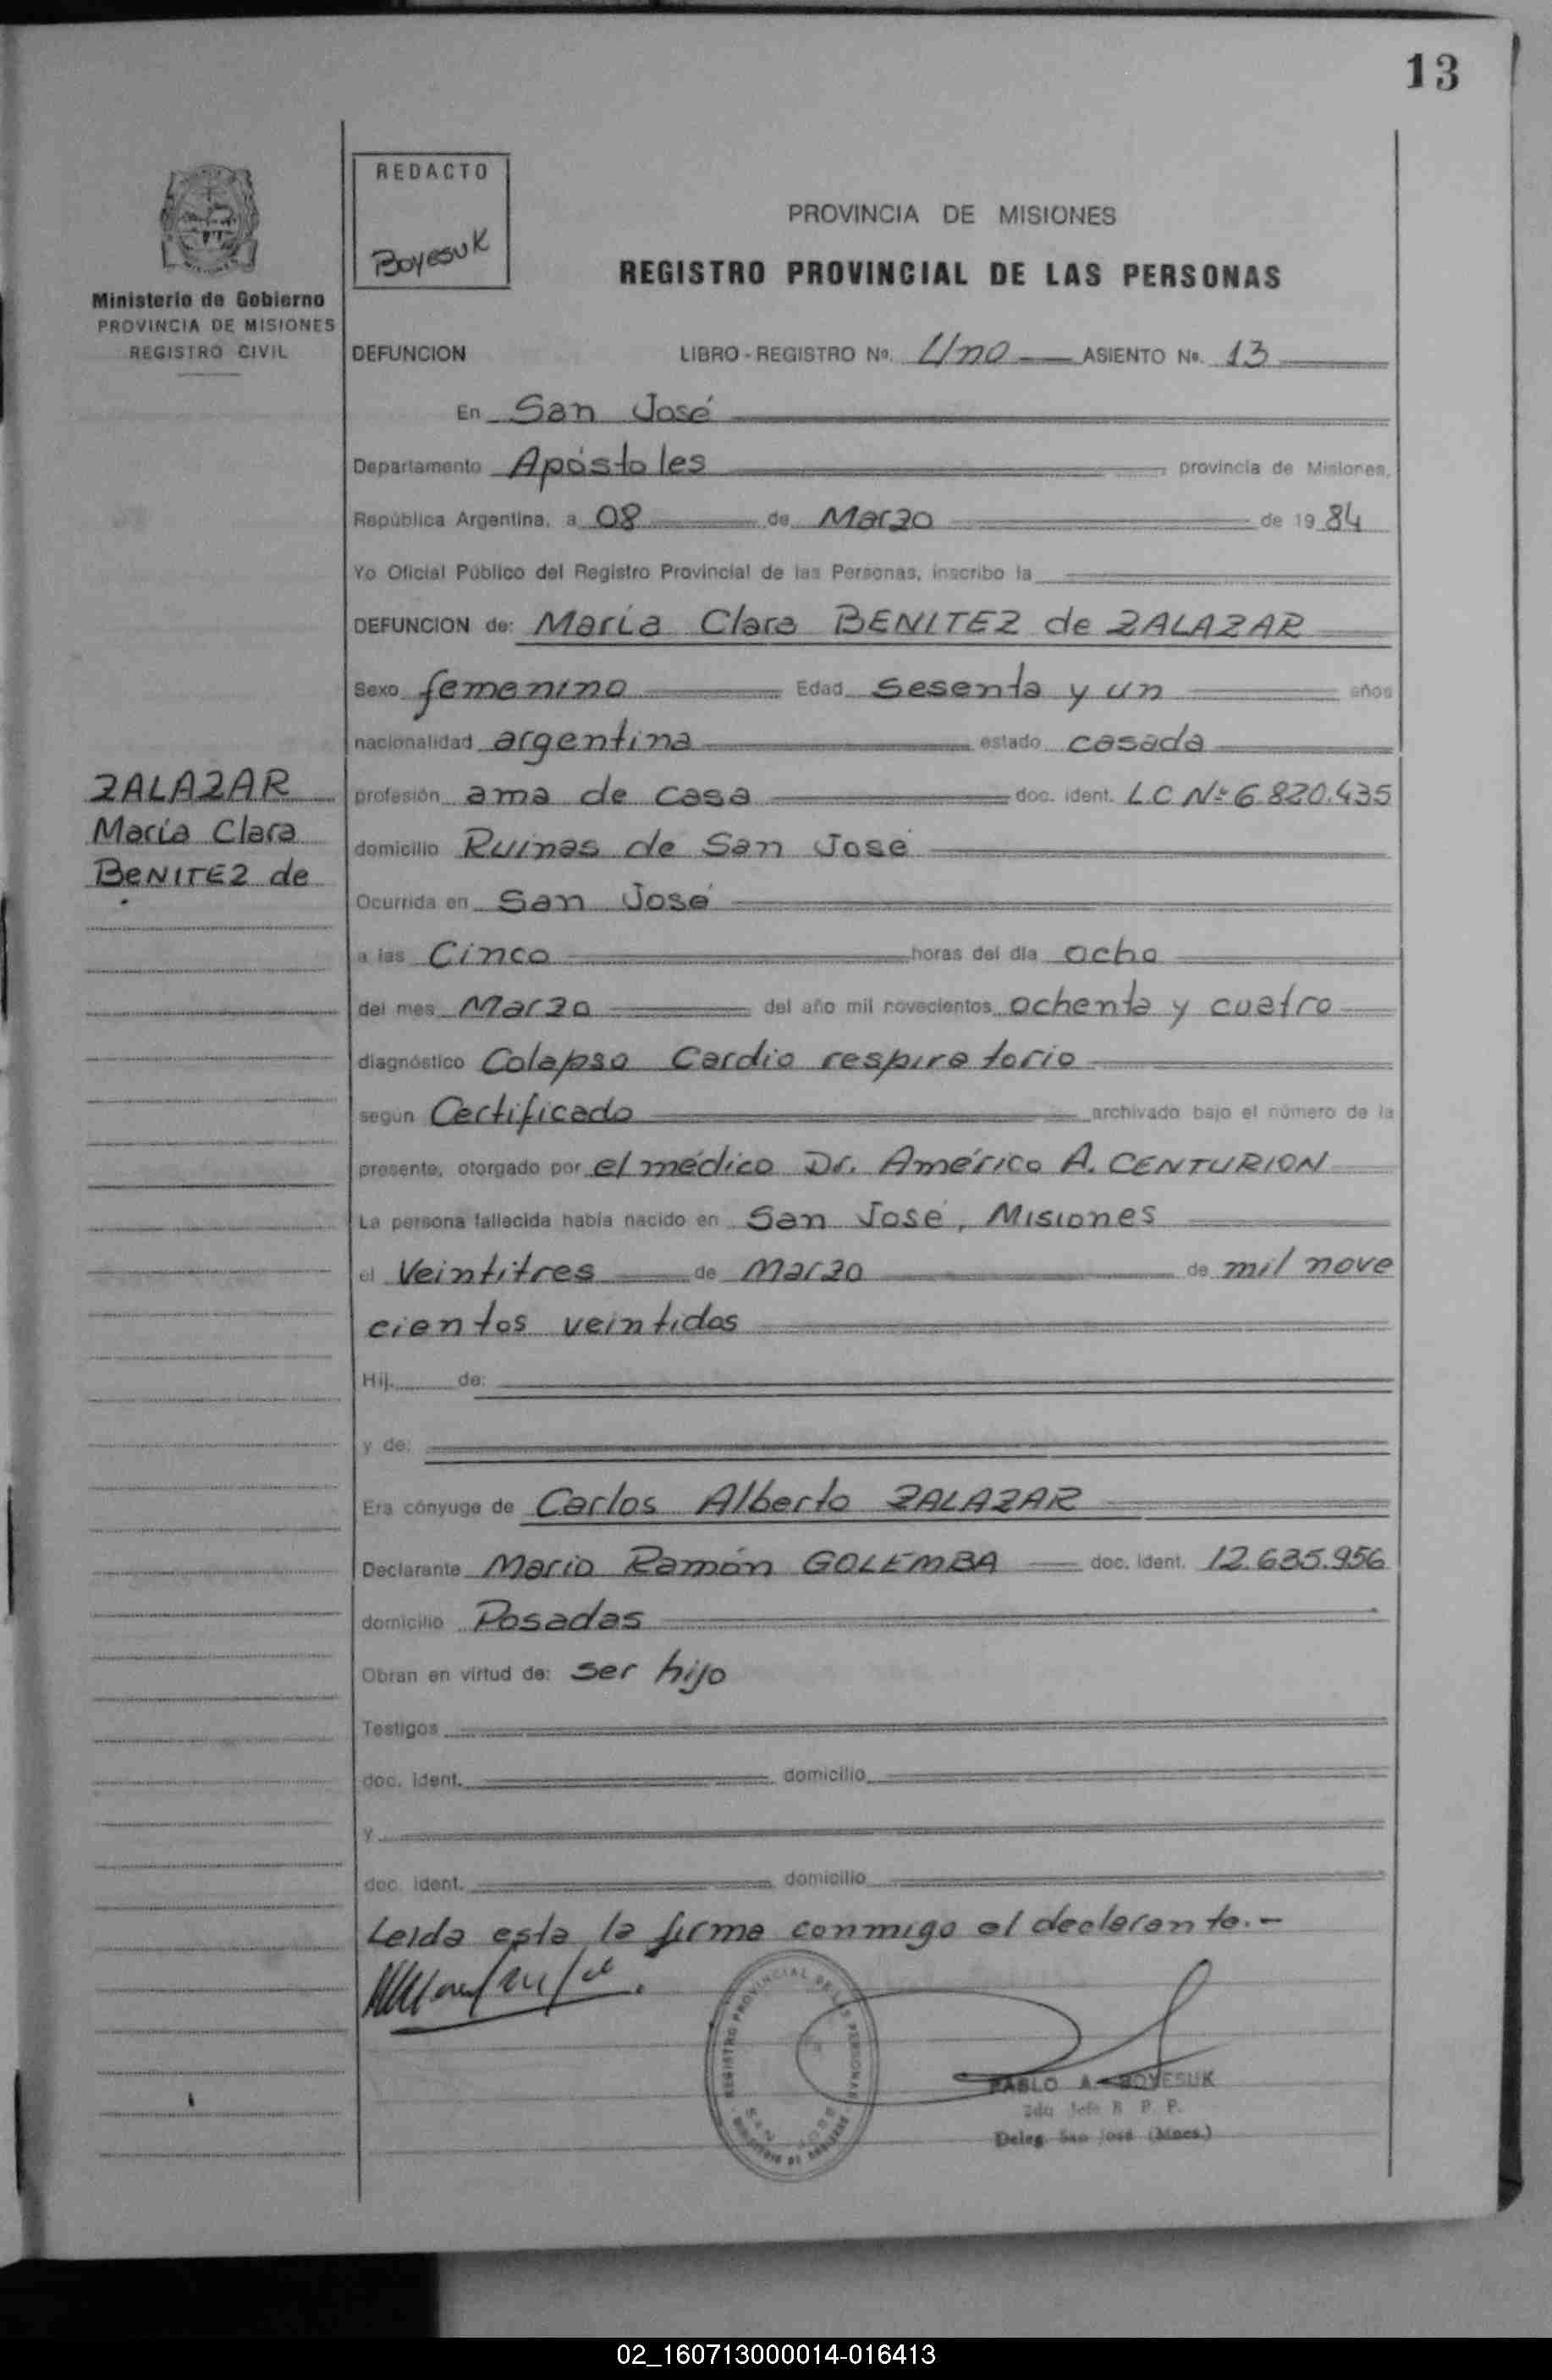 13
REDACTO
Boyesuk
Ministerio de Gobierno
PROVINCIA DE MISIONES
REGISTRO CIVIL
PROVINCIA DE MISIONES
REGISTRO PROVINCIAL DE LAS PERSONAS
DEFUNCION LIBRO - REGISTRO Nº. Uno ASIENTO Nº. 13
En San José
Departamento Apóstoles provincia de Misiones,
República Argentina, a 08 de Marzo de 19 84
Yo Oficial Público del Registro Provincial de las Personas, inscribo la
DEFUNCION de: María Clara BENITEZ de ZALAZAR
Sexo femenino Edad sesenta y un años
nacionalidad argentina estado casada
ZALAZAR
María Clara
BENITEZ de
profesión ama de casa doc. ident. LC Nº 6.820.435
domicilio Ruinas de San José
Ocurrida en San José
a las Cinco horas del día ocho
del mes Marzo del año mil novecientos ochenta y cuatro
diagnóstico Colapso Cardio respiratorio
según Certificado archivado bajo el número de la
presente, otorgado por el médico Dr. Américo A. CENTURION
La persona fallecida había nacido en San José, Misiones
el Veintitres de Marzo de mil nove
cientos veintidos
Hij de:
y de:
Era cónyuge de Carlos Alberto ZALAZAR
Declarante Mario Ramón GOLEMBA doc. ident. 12.635.956
domicilio Posadas
Obran en virtud de: ser hijo
Testigos
doc. ident. domicilio
y
doc. ident. domicilio
Leida esta la firma conmigo el declarante.-
REGISTRO PROVINCIAL DE LAS PERSONAS
SAN JOSE
PABLO A. BOYESUK
2do Jefe R P. P.
Deleg. San José (Mnes.)
02_160713000014-016413